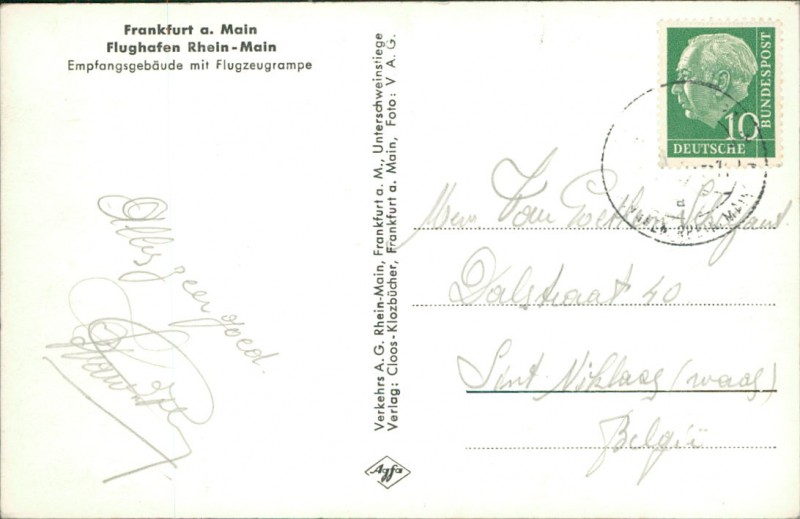 Frankfurt a. Main
Flughafen Rhein-Main
Empfangsgebäude mit Flugzeugrampe
Alles zeer goed.
Verkehrs A.G. Rhein-Main, Frankfurt a. M., Unterschweinstiege
Verlag: Cloos-Klazbücher, Frankfurt a. Main, Foto: V A.G.
Agfa
10
DEUTSCHE
BUNDESPOST
RHEIN/MAIN
Mevr. Van
Dalstraat 40
Sint Niklaas (waas)
België